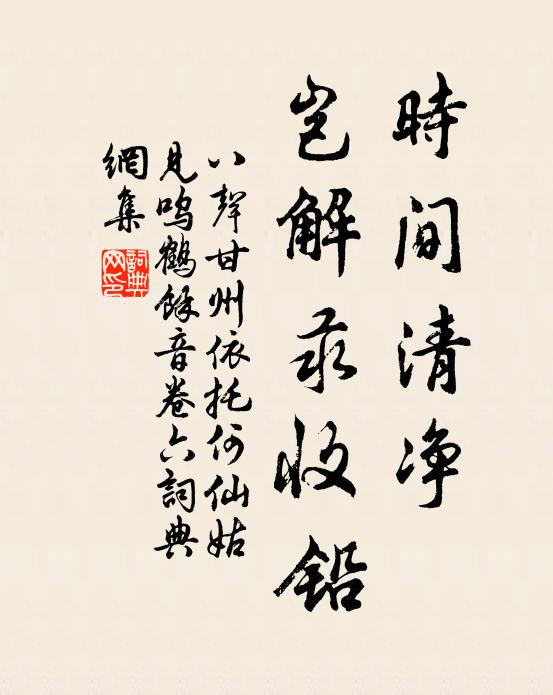 時间清净
岂解汞收鉛
八聲甘州依托何仙姑
見鳴鶴餘音卷六詞典
網集
詞典
网印